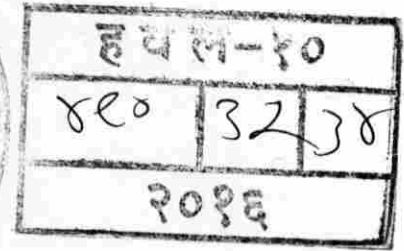 हवल-१०
४९० ३२ ३४
२०१६